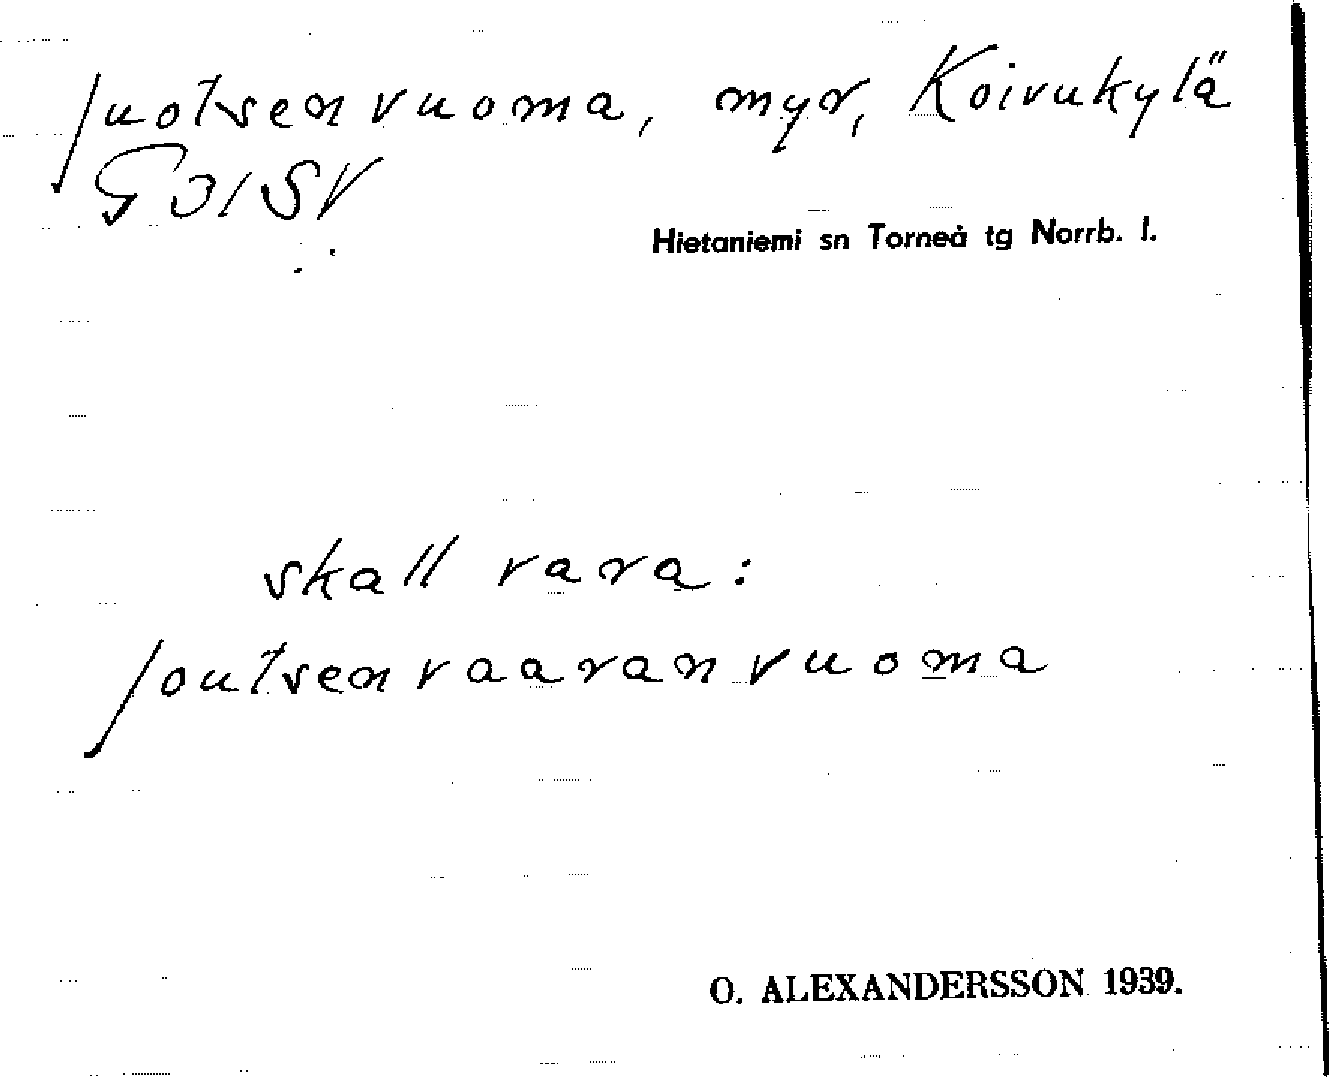 Juotsenvuoma, myr, Koivukylä
G 31 SV
Hietaniemi sn Torneå tg Norrb. l.
skall vara:
Joutsenvaaranvuoma
O. ALEXANDERSSON 1939.